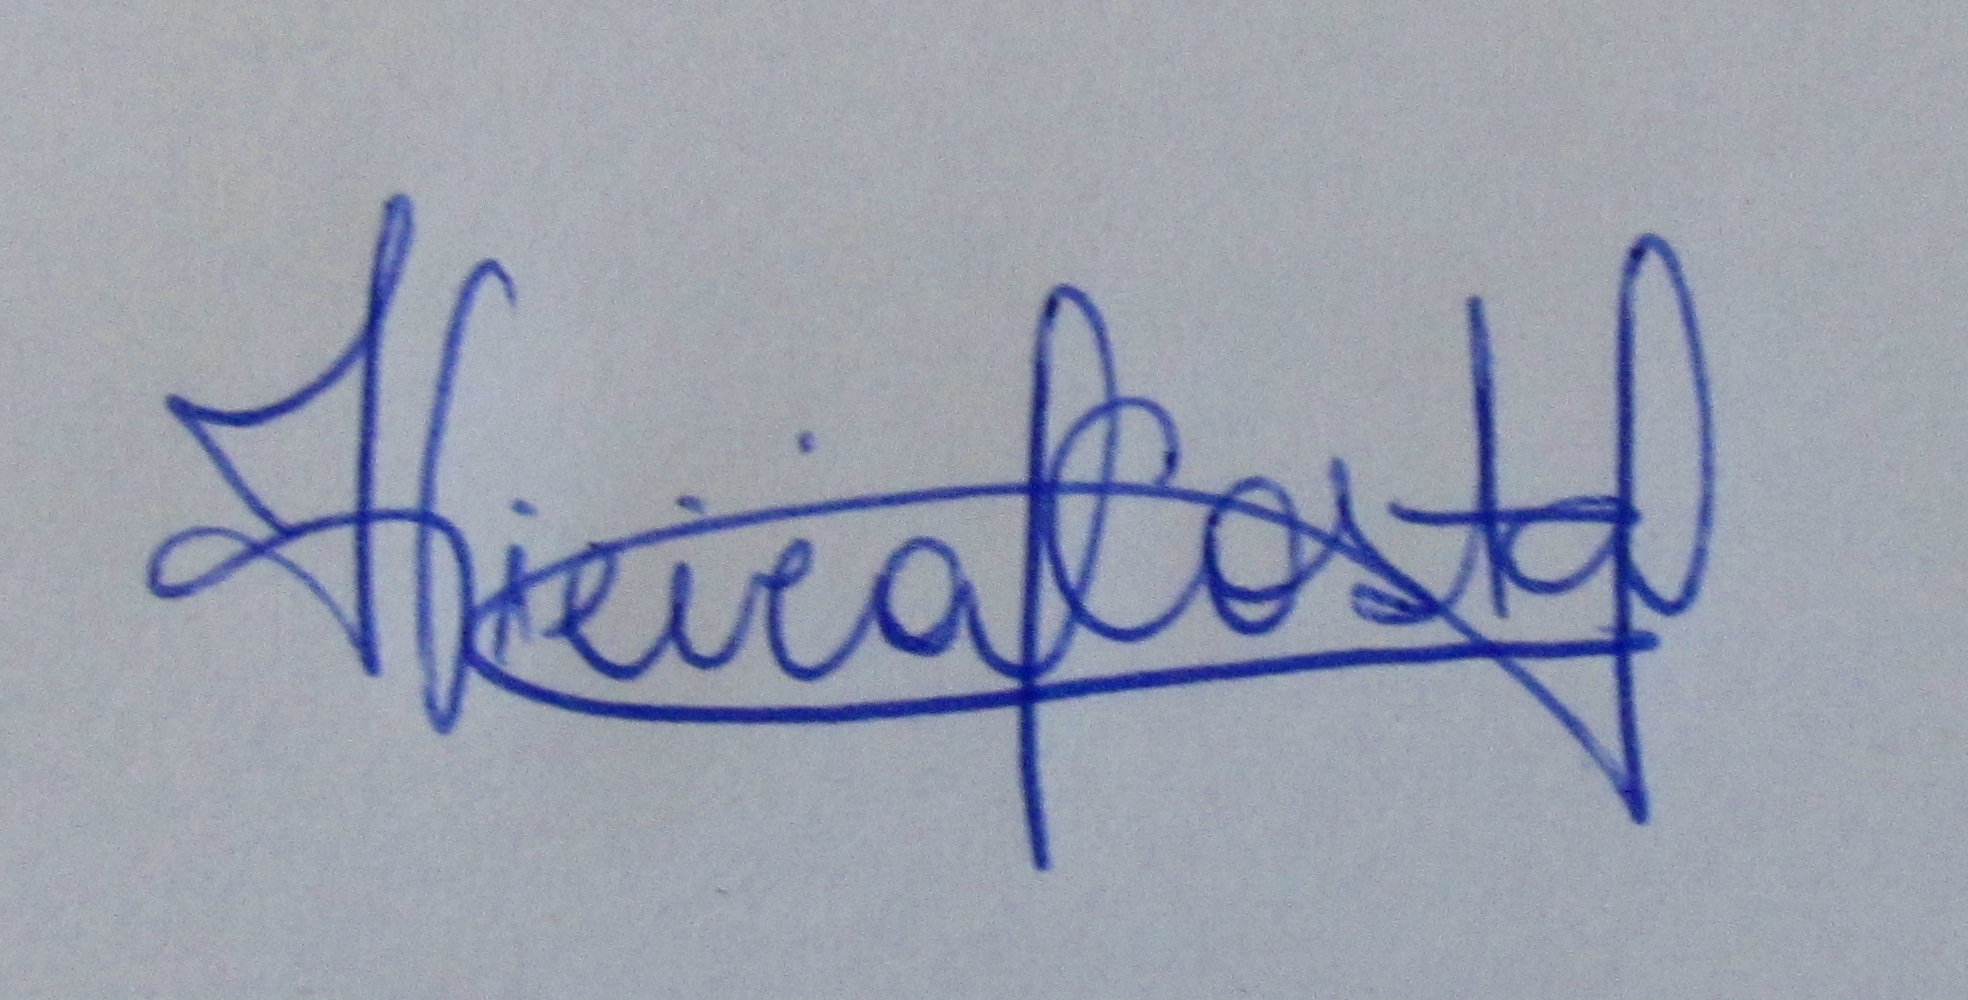 Vieira Costa